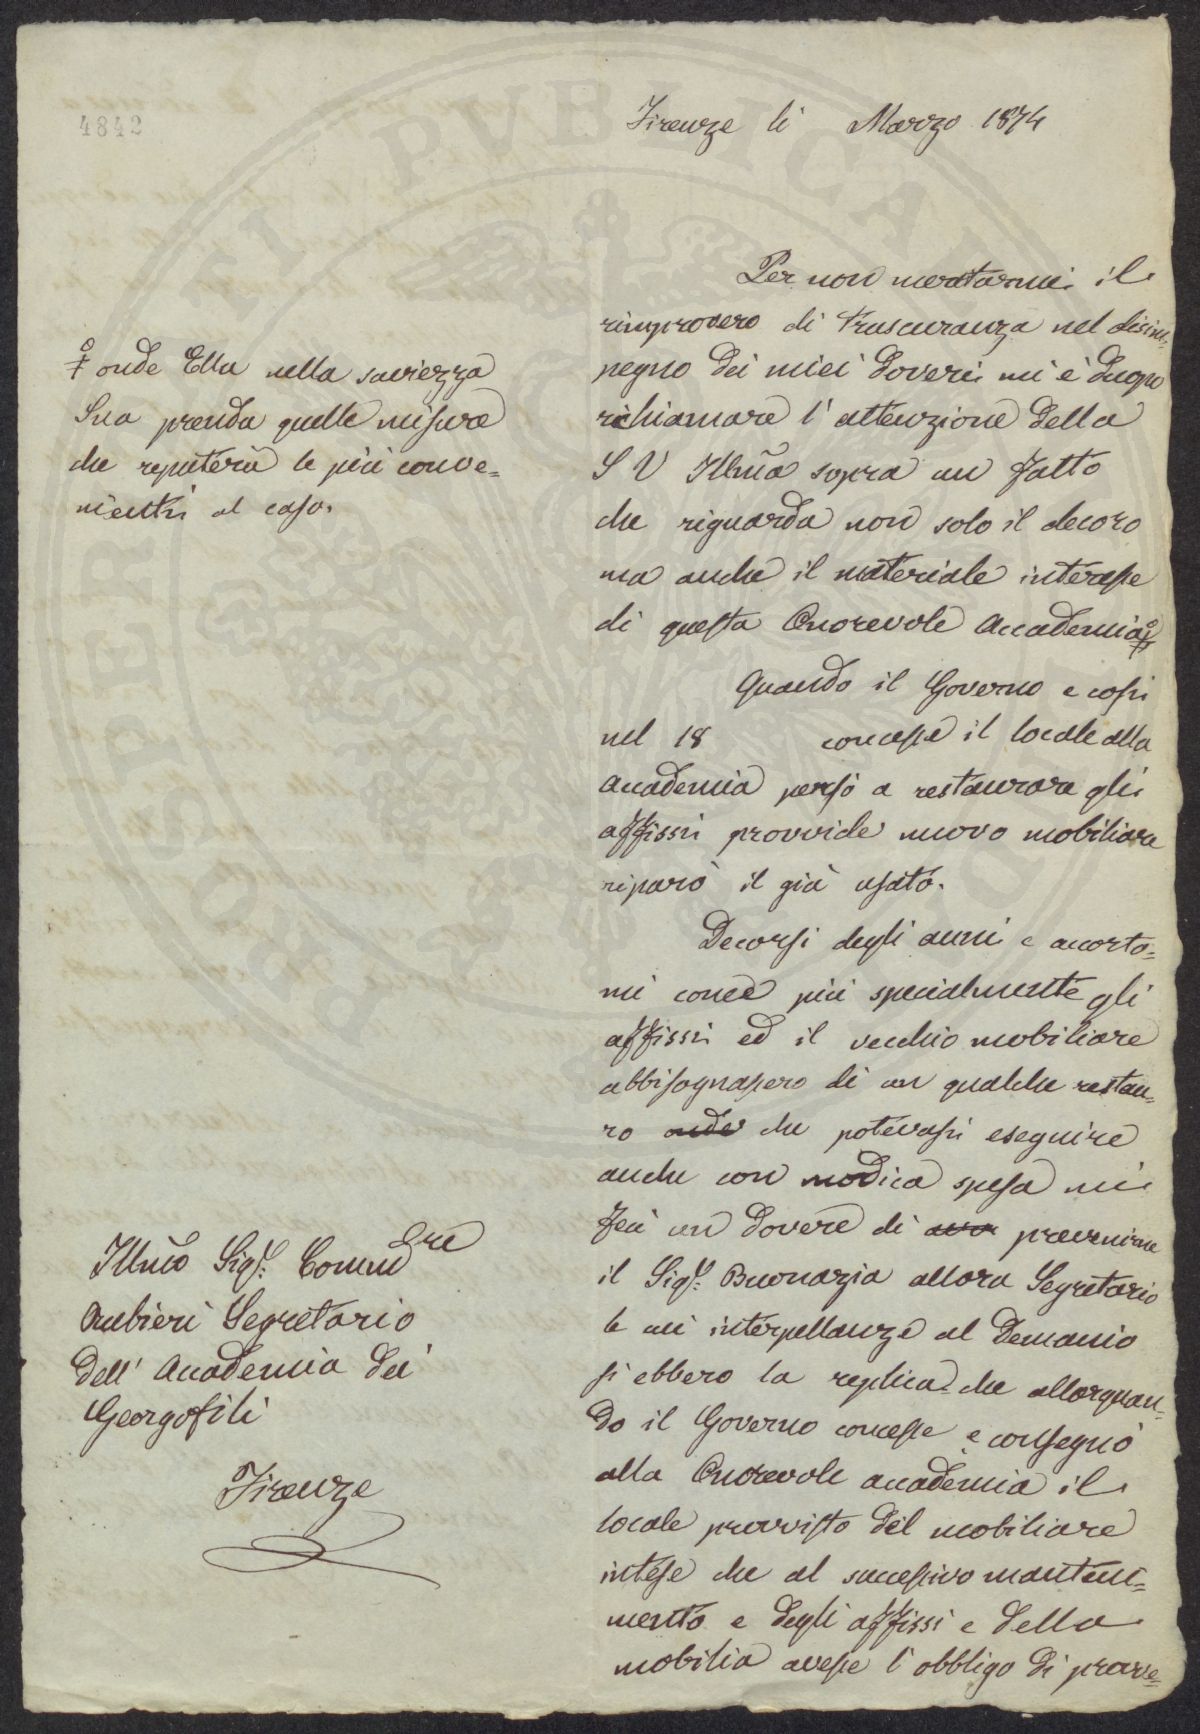 4842
Firenze li Marzo 1874
Per non meritarmi il
rimprovero di trascuranza nel disim-
pegno dei miei doveri mi è duopo
richiamare l'attenzione della
S V Illma sopra un fatto
che riguarda non solo il decoro
ma anche il materiale interesse
di questa Onorevole Accademia
Quando il Governo e cosi
nel 18 concesse il locale alla
Accademia pensò a restaurare gli
affissi provvide nuovo mobiliare
riparò il già usato.
Decorsi degli anni e accorto-
mi come più specialmente gli
affissi ed il vecchio mobiliare
abbisognassero di un qualche restau-
ro onde che potevasi eseguire
anche con modica spesa mi
feci un dovere di prevenirne
il Sigr. Buonazia allora Segretario
le cui interpellanze al Demanio
si ebbero la replica che allorquan-
do il Governo concesse e consegnò
alla Onorevole accademia il
locale provvisto del mobiliare
intese che al successivo manteni-
mento e degli affissi e della
mobilia avesse l'obbligo di prove-
onde Ella nella saviezza
Sua prenda quelle misure
che reputerà le più conve-
nienti al caso.
Illmo Sigr. Commdre
Rubieri Segretario
Dell' Accademia dei
Georgofili
Firenze
PERICI PVBLICAE